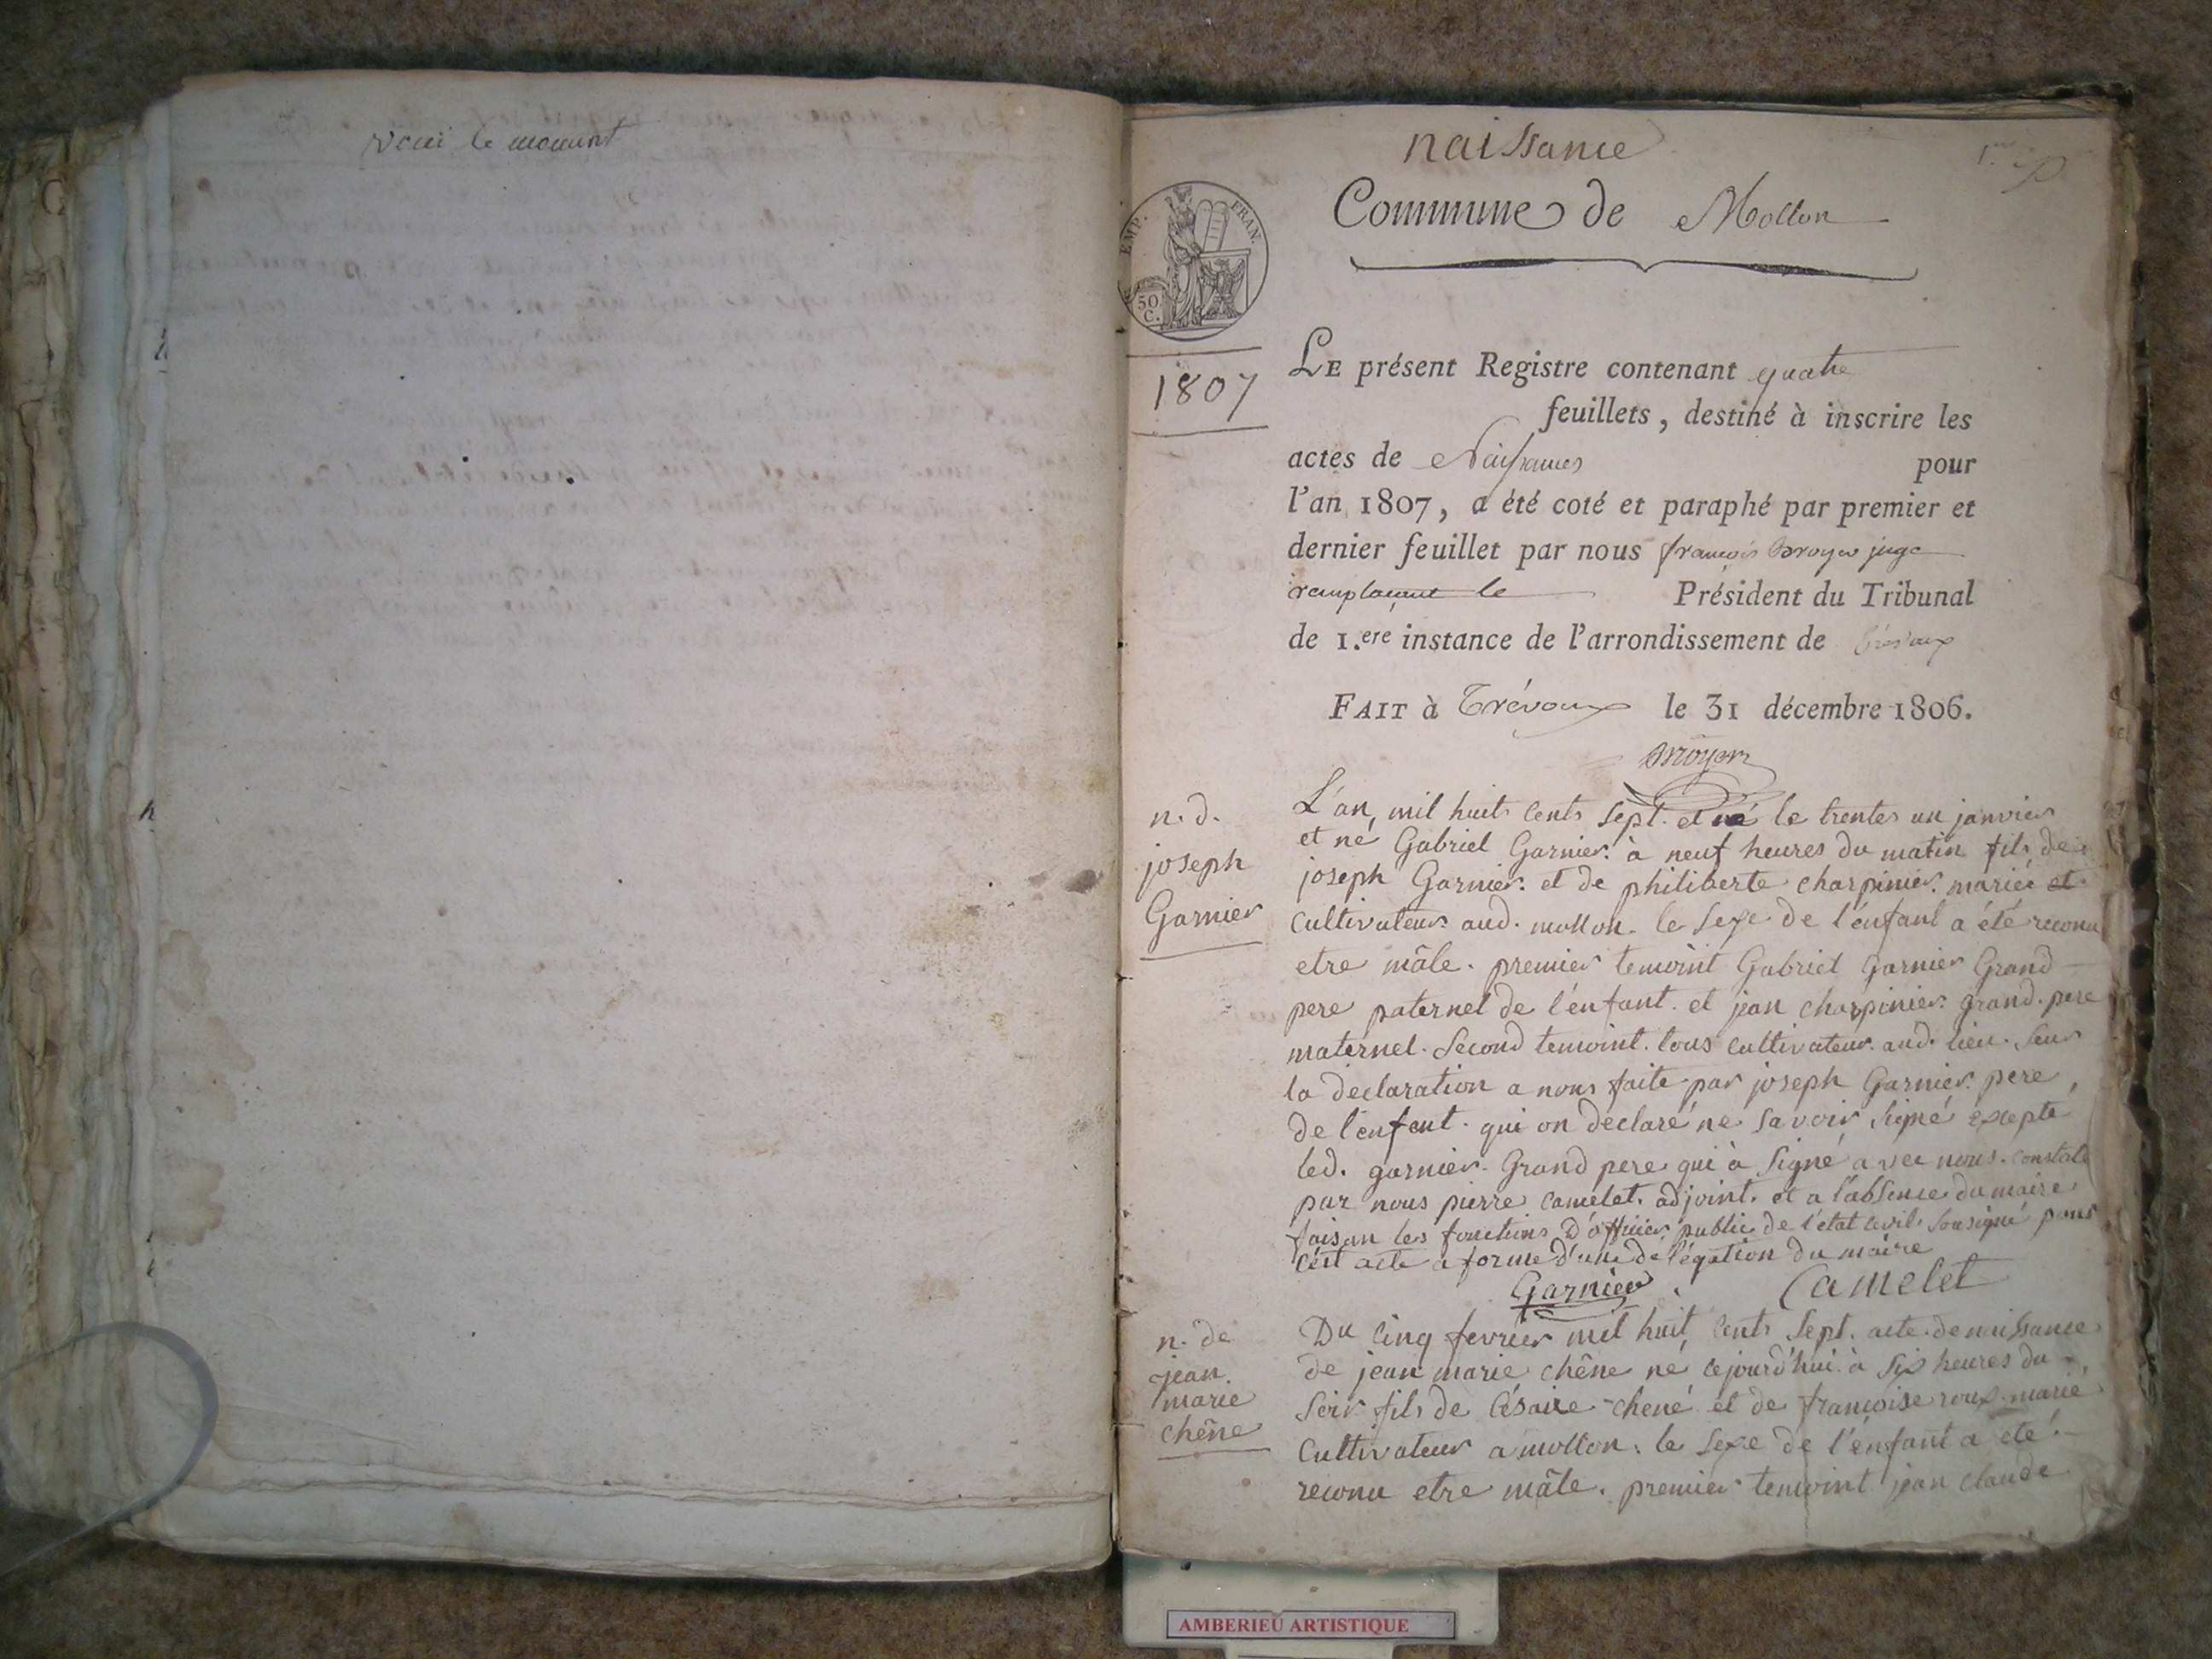 le
naissance
1.er
Commune de Mollon
EMP. FRAN.
50
C.
1807
LE présent Registre contenant quatre
feuillets, destiné à inscrire les
actes de Naissances pour
l'an 1807, a été coté et paraphé par premier et
dernier feuillet par nous françois Broyer juge
remplaçant le Président du Tribunal
de 1.ere instance de l'arrondissement de Trévoux
FAIT à Trévoux le 31 décembre 1806.
Broyer
n. d.
joseph
Garnier
L'an mil huit cents sept. et né le trentes un janvier
et né Gabriel Garnier. à neuf heures du matin fils de
joseph Garnier. et de philiberte charpinier. mariée et
cultivateur aud. mollon. le sexe de l'énfant a été reconu
etre mâle. premier temoint Gabriel Garnier Grand
pere paternel de l'énfant. et jean charpinier. grand. pere
maternel. second temoint. tous cultivateur. aud. lieu. sur
la déclaration a nous faite par joseph Garnier. pere
de l'enfent. qui on declaré ne savoir signé éxcepté
led. garnier. Grand pere qui à signé avec nous. constaté
par nous pierre Camelet. adjoint. et a l'absence du maire
faisan les fonctions D'officier public de l'état civil. sousigné
céit acte a forme d'une délégation du maire
Garnier Camelet
n. de
jean
marie
chêne
Du cinq fevrier mil huit cents sept. acte de naissance
de jean marie chêne né cejourd'hui à six heures du
soir fils de Césaire chené et de françoise roux. marié
cultivateur a mollon. le sexe de l'énfant a été
reconu etre mâle. premier temoint jean claude
AMBERIEU ARTISTIQUE